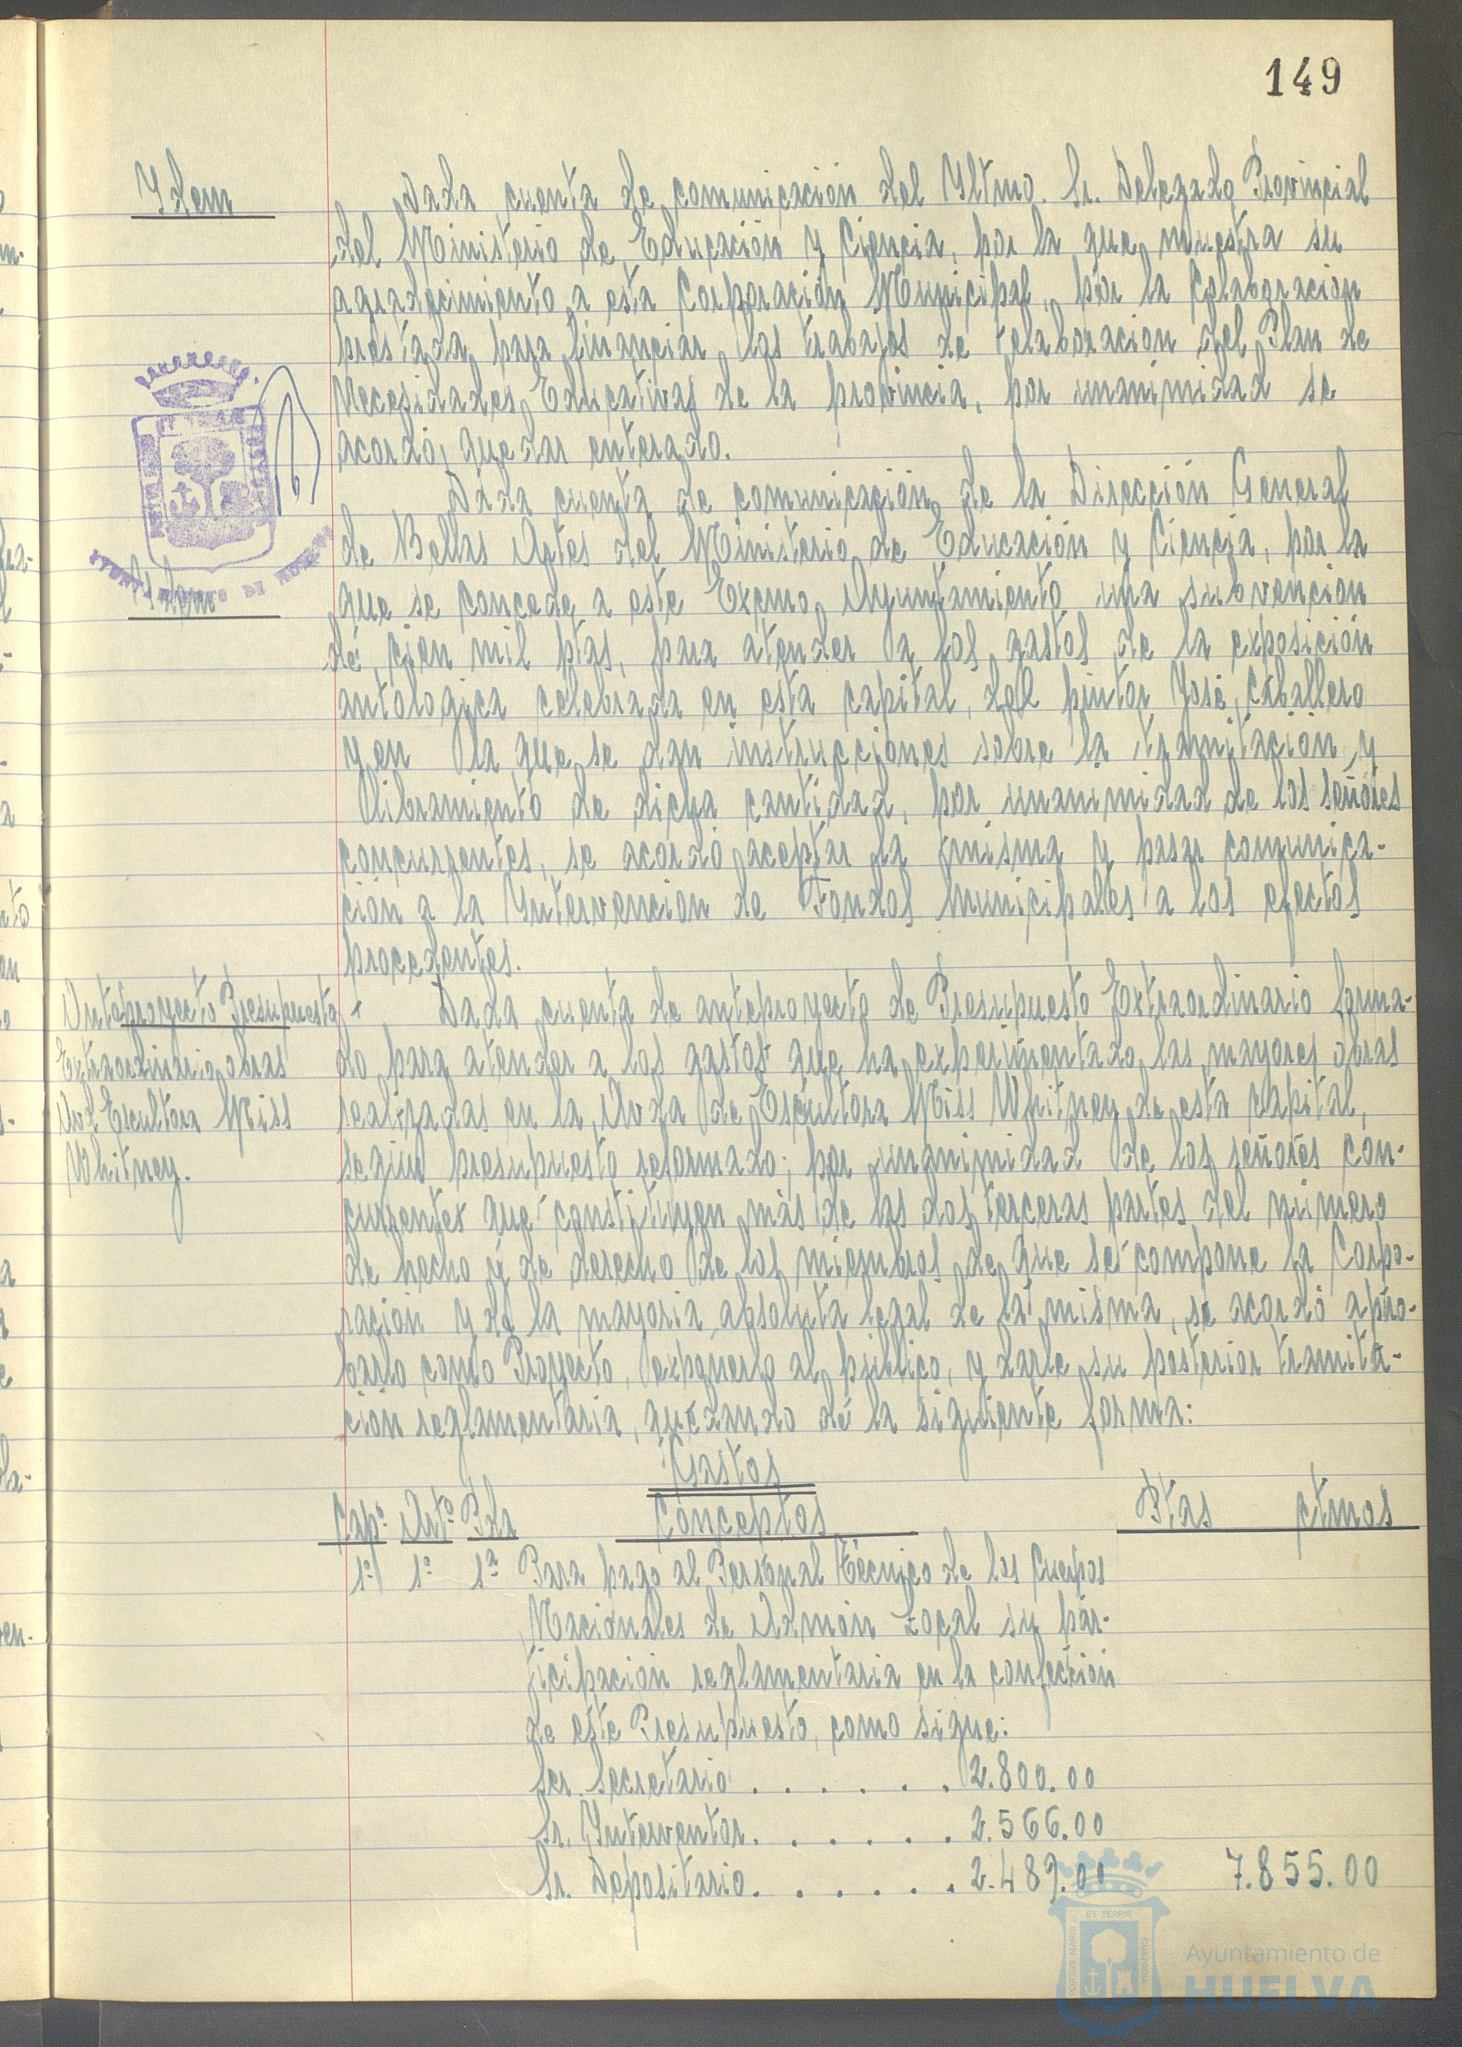 149
Idem
Dada cuenta de comunicación del Iltmo. Sr. Delegado Provincial
del Ministerio de Educación y Ciencia, por la que muestra su
agradecimiento a esta Corporación Municipal, por la Colaboración
prestada para financiar los trabajos de elaboración del Plan de
Necesidades Educativas de la provincia, por unanimidad se
acordó, quedar enterado.
Idem
Dada cuenta de comunicación de la Dirección General
de Bellas Artes del Ministerio de Educación y Ciencia, por la
que se concede a este Excmo. Ayuntamiento una subvención
de cien mil ptas, para atender a los gastos de la exposición
antologica celebrada en esta capital, del pintor José Caballero
y en la que se dan instrucciones sobre la tramitación y
libramiento de dicha cantidad, por unanimidad de los señores
concurrentes, se acordó aceptar la misma y pasar comunica-
ción a la Intervención de Fondos Municipales a los efectos
procedentes.
Anteproyecto Presupuesto
Extraordinario obras
Avd Escultora Miss
Whitney.
Dada cuenta de anteproyecto de Presupuesto Extraordinario forma-
do para atender a los gastos que ha experimentado las mayores obras
realizadas en la Avda de Escultora Miss Whitney de esta capital,
según presupuesto reformado; por unanimidad de los señores con-
currentes que constituyen más de las dos terceras partes del número
de hecho y de derecho de los miembros de que se compone la Corpo-
ración y de la mayoria absoluta legal de la misma, se acordó apro-
barlo como Proyecto, exponerlo al público, y darle su posterior tramita-
ción reglamentaria, quedando de la siguiente forma:
Gastos
Cap.º Artº Pda Conceptos Ptas ctmos
1º 1º 1ª Para pago al Personal Técnico de los Cuerpos
Nacionales de Admón Local su par-
ticipación reglamentaria en la confección
de este Presupuesto, como sigue:
Ser. Secretario . . . . . . 2.800.00
Sr. Interventor. . . . . . . 2.566.00
Sr. Depositario. . . . . . . 2.489.00 7.855.00
PORTUS MARIS
ET TERRÆ
CUSTODIA
Ayuntamiento de
HUELVA